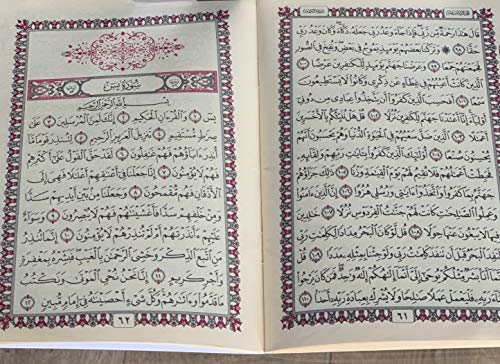 قَالَ هَٰذَا رَحْمَةٌ مِّن رَّبِّي فَإِذَا جَآءَ وَعْدُ رَبِّي جَعَلَهُۥ دَكَّآءَ وَكَانَ وَعْدُ رَبِّي
حَقًّا ٩٨ وَتَرَكْنَا بَعْضَهُمْ يَوْمَئِذٍ يَمُوجُ فِي بَعْضٍ وَنُفِخَ فِي ٱلصُّورِ
فَجَمَعْنَٰهُمْ جَمْعًا ٩٩ وَعَرَضْنَا جَهَنَّمَ يَوْمَئِذٍ لِّلْكَٰفِرِينَ عَرْضًا ١٠٠
ٱلَّذِينَ كَانَتْ أَعْيُنُهُمْ فِي غِطَآءٍ عَن ذِكْرِي وَكَانُوا۟ لَا يَسْتَطِيعُونَ
سَمْعًا ١٠١ أَفَحَسِبَ ٱلَّذِينَ كَفَرُوٓا۟ أَن يَتَّخِذُوا۟ عِبَادِي مِن دُونِيٓ
أَوْلِيَآءَ إِنَّآ أَعْتَدْنَا جَهَنَّمَ لِلْكَٰفِرِينَ نُزُلًا ١٠٢ قُلْ هَلْ نُنَبِّئُكُم بِٱلْأَخْسَرِينَ
أَعْمَٰلًا ١٠٣ ٱلَّذِينَ ضَلَّ سَعْيُهُمْ فِي ٱلْحَيَوٰةِ ٱلدُّنْيَا وَهُمْ يَحْسَبُونَ أَنَّهُمْ
يُحْسِنُونَ صُنْعًا ١٠٤ أُو۟لَٰٓئِكَ ٱلَّذِينَ كَفَرُوا۟ بِـَٔايَٰتِ رَبِّهِمْ وَلِقَآئِهِۦ
فَحَبِطَتْ أَعْمَٰلُهُمْ فَلَا نُقِيمُ لَهُمْ يَوْمَ ٱلْقِيَٰمَةِ وَزْنًا ١٠٥ ذَٰلِكَ جَزَآؤُهُمْ
جَهَنَّمُ بِمَا كَفَرُوا۟ وَٱتَّخَذُوٓا۟ ءَايَٰتِي وَرُسُلِي هُزُوًا ١٠٦ إِنَّ ٱلَّذِينَ ءَامَنُوا۟
وَعَمِلُوا۟ ٱلصَّٰلِحَٰتِ كَانَتْ لَهُمْ جَنَّٰتُ ٱلْفِرْدَوْسِ نُزُلًا ١٠٧ خَٰلِدِينَ
فِيهَا لَا يَبْغُونَ عَنْهَا حِوَلًا ١٠٨ قُل لَّوْ كَانَ ٱلْبَحْرُ مِدَادًا لِّكَلِمَٰتِ رَبِّي
لَنَفِدَ ٱلْبَحْرُ قَبْلَ أَن تَنفَدَ كَلِمَٰتُ رَبِّي وَلَوْ جِئْنَا بِمِثْلِهِۦ مَدَدًا ١٠٩
قُلْ إِنَّمَآ أَنَا۠ بَشَرٌ مِّثْلُكُمْ يُوحَىٰٓ إِلَيَّ أَنَّمَآ إِلَٰهُكُمْ إِلَٰهٌ وَٰحِدٌ فَمَن كَانَ يَرْجُوا۟
لِقَآءَ رَبِّهِۦ فَلْيَعْمَلْ عَمَلًا صَٰلِحًا وَلَا يُشْرِكْ بِعِبَادَةِ رَبِّهِۦٓ أَحَدًۢا ١١٠
٦١
سُورَةُ يسٓ
بِسْمِ ٱللَّهِ ٱلرَّحْمَٰنِ ٱلرَّحِيمِ
يسٓ ١ وَٱلْقُرْءَانِ ٱلْحَكِيمِ ٢ إِنَّكَ لَمِنَ ٱلْمُرْسَلِينَ ٣ عَلَىٰ
صِرَٰطٍ مُّسْتَقِيمٍ ٤ تَنزِيلَ ٱلْعَزِيزِ ٱلرَّحِيمِ ٥ لِتُنذِرَ قَوْمًا مَّآ
أُنذِرَ ءَابَآؤُهُمْ فَهُمْ غَٰفِلُونَ ٦ لَقَدْ حَقَّ ٱلْقَوْلُ عَلَىٰٓ أَكْثَرِهِمْ
فَهُمْ لَا يُؤْمِنُونَ ٧ إِنَّا جَعَلْنَا فِيٓ أَعْنَٰقِهِمْ أَغْلَٰلًا فَهِيَ إِلَى
ٱلْأَذْقَانِ فَهُم مُّقْمَحُونَ ٨ وَجَعَلْنَا مِنۢ بَيْنِ أَيْدِيهِمْ سَدًّا
وَمِنْ خَلْفِهِمْ سَدًّا فَأَغْشَيْنَٰهُمْ فَهُمْ لَا يُبْصِرُونَ ٩ وَسَوَآءٌ
عَلَيْهِمْ ءَأَنذَرْتَهُمْ أَمْ لَمْ تُنذِرْهُمْ لَا يُؤْمِنُونَ ١٠ إِنَّمَا تُنذِرُ
مَنِ ٱتَّبَعَ ٱلذِّكْرَ وَخَشِيَ ٱلرَّحْمَٰنَ بِٱلْغَيْبِ فَبَشِّرْهُ بِمَغْفِرَةٍ
وَأَجْرٍ كَرِيمٍ ١١ إِنَّا نَحْنُ نُحْيِ ٱلْمَوْتَىٰ وَنَكْتُبُ
مَا قَدَّمُوا۟ وَءَاثَٰرَهُمْ وَكُلَّ شَيْءٍ أَحْصَيْنَٰهُ فِيٓ إِمَامٍ مُّبِينٍ ١٢
٦٢